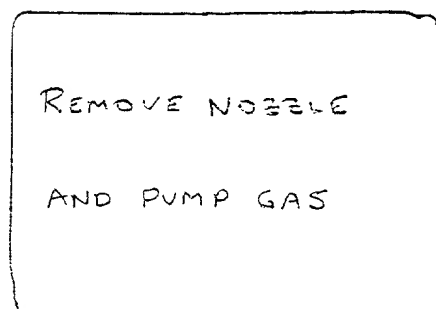 REMOVE NOZZLE
AND PUMP GAS